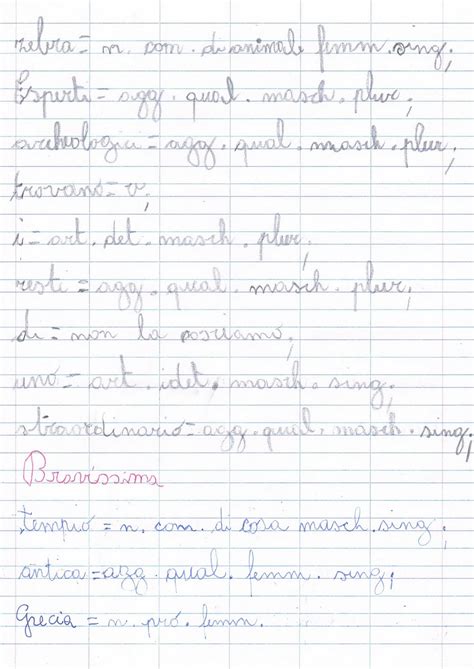 zebra = n. com. di animale femm. sing;
Esperti = agg. qual. masch. plur;
archeologici = agg. qual. masch. plur;
trovano = v;
i = art. det. masch. plur;
resti = agg. qual. masch. plur;
di = non la possiamo;
uno = art. idet. masch. sing;
straordinario = agg. qual. masch. sing;
Bravissima
tempio = n. com. di cosa masch. sing;
antica = agg. qual. femm. sing;
Grecia = n. pro. femm.